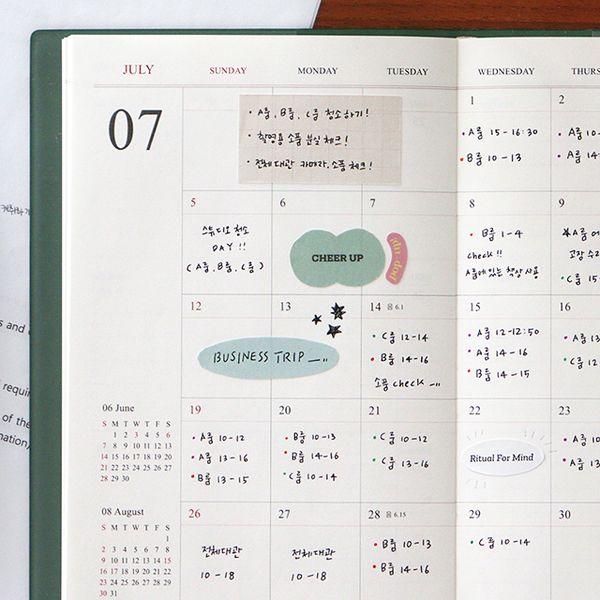 JULY
SUNDAY
MONDAY
TUESDAY
WEDNESDAY
THURS
07
• A룸, B룸, C룸 청소하기!
• 촬영용 소품 분실 체크!
• 전체대관 카메라, 소품 체크!
1
• A룸 15 - 16:30
• B룸 10 - 13
2
• A룸 10
• A룸 14
5
스튜디오 청소
DAY !!
( A룸, B룸, C룸 )
6
CHEER UP
7
8
• B룸 1 - 4
check !!
A룸에 있는 책상 사용
9
★A룸 에
고장 수리
• C룸 15
12
BUSINESS TRIP
13
14 6.1
• C룸 12-14
• B룸 14-16
소품 check
15
• A룸 12-12:50
• A룸 14 - 16
• B룸 14 - 15
16
• A룸 13
• C룸 12
19
• A룸 10 - 12
• A룸 13 - 16
• B룸 13 - 15
20
• B룸 10 - 13
• B룸 14-16
• C룸 10 - 14
21
• C룸 10 - 12
• C룸 13 - 16
22
Ritual For Mind
23
• A룸 10
• A룸 13
26
전체대관
10 - 18
27
전체대관
10 - 18
28 6.15
• B룸 10 - 13
• B룸 14 - 16
29
• C룸 10 - 14
30
06 June
S M T W T F S
1 2 3 4 5 6
7 8 9 10 11 12 13
14 15 16 17 18 19 20
21 22 23 24 25 26 27
28 29 30
08 August
S M T W T F S
1
2 3 4 5 6 7 8
9 10 11 12 13 14 15
16 17 18 19 20 21 22
23 24 25 26 27 28 29
s and
requir
of the
nation)